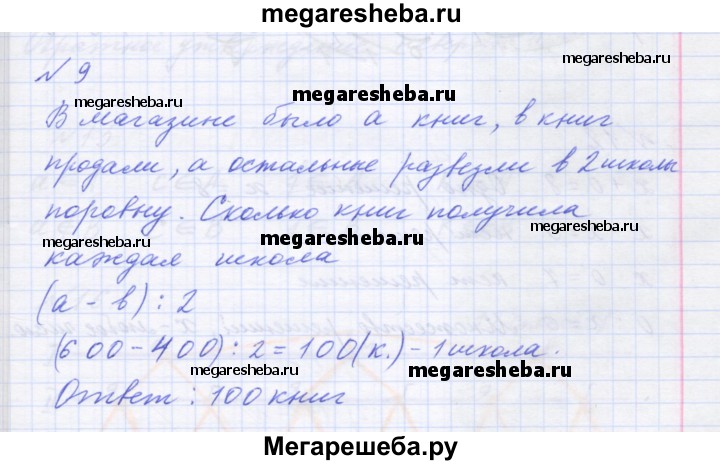 megaresheba.ru
№ 9
megaresheba.ru
megaresheba.ru
megaresheba.ru
В магазине было а книг, в книг
продали, а остальные развезли в 2 школы
megaresheba.ru
поровну. Сколько книг получила
megaresheba.ru
megaresheba.ru
каждая школа
(а - в) : 2
(600 - 400) : 2 = 100 (к.) - 1 школа.
megaresheba.ru
megaresheba.ru
megaresheba.ru
Ответ : 100 книг
Мегарешеба.ру